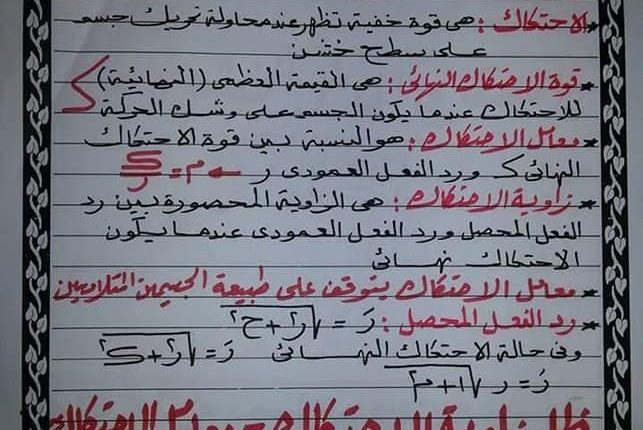 * الاحتكاك : هى قوة خفية تظهر عند محاولة تحريك جسم
على سطح خشن
* قوة الاحتكاك النهائى : هى القيمة العظمى (النهائية)
للاحتكاك عندما يكون الجسم على وشك الحركة
* معامل الاحتكاك : هو النسبة بين قوة الاحتكاك
النهائى ك ورد الفعل العمودى ر ← م = ك/ر
* زاوية الاحتكاك : هى الزاوية المحصورة بين رد
الفعل المحصل ورد الفعل العمودى عندما يكون
الاحتكاك نهائى
* معامل الاحتكاك يتوقف على طبيعة الجسمين المتلامسين
* رد الفعل المحصل : رَ = √(ر٢ + ح٢)
وفى حالة الاحتكاك النهائى رَ = √(ر٢ + ك٢)
رَ = ر √(١ + م٢)
ظل زاوية الاحتكاك = معامل الاحتكاك